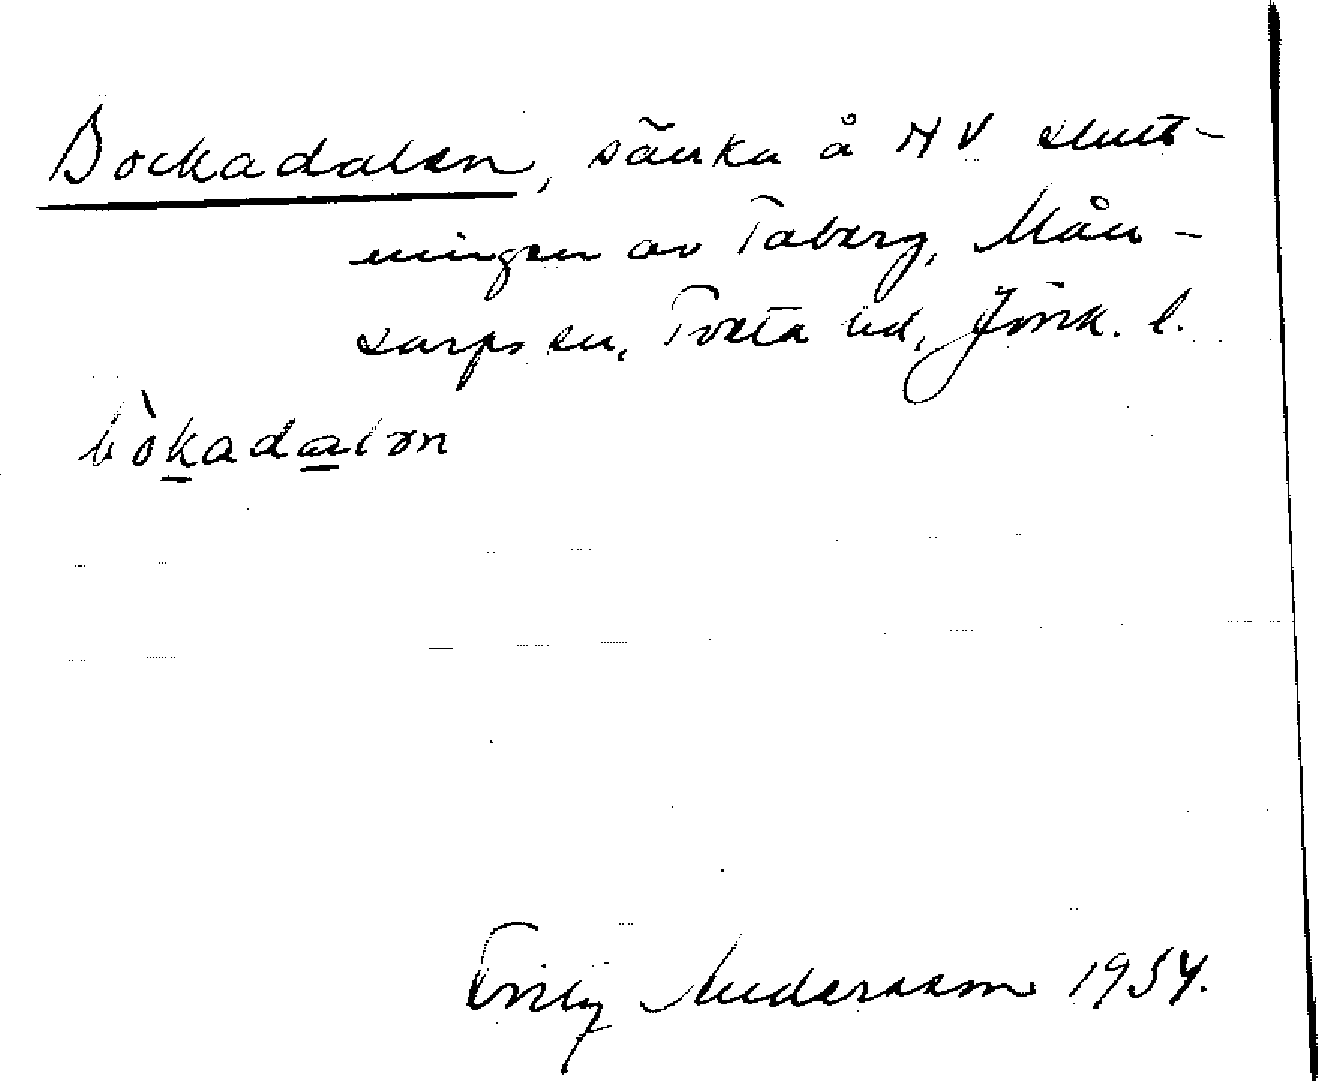 Bockadalen, sänka å NV slutt-
ningen av Taberg, Mån-
sarps sn, Tveta hd, Jönk. l.
bòkadalən
Andersson 1954.